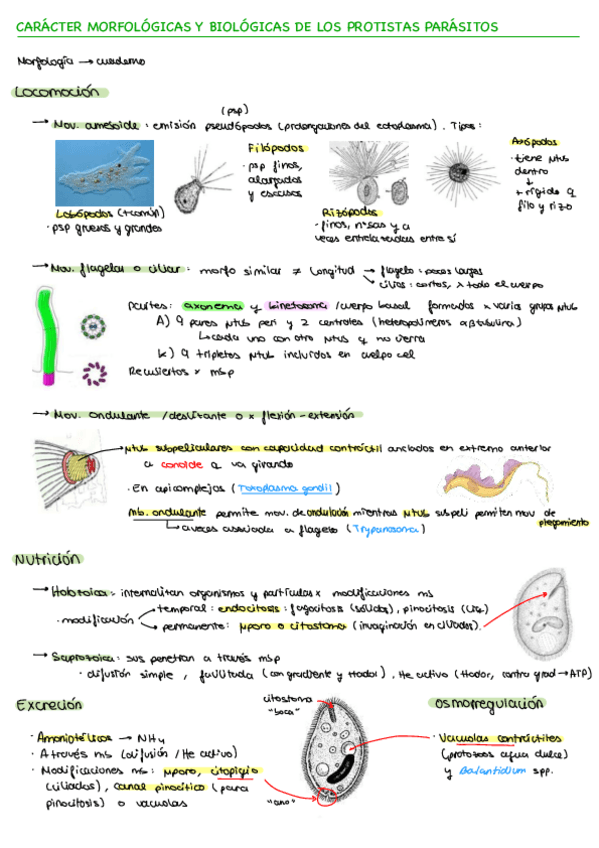 CARÁCTER MORFOLÓGICAS Y BIOLÓGICAS DE LOS PROTISTAS PARÁSITOS
Morfología → cuaderno
Locomoción
(psp)
→ Mov. ameboide: emisión pseudópodos (prolongaciones del ectoplasma). Tipos:
Lobópodos (+común)
· psp gruesos y grandes
Filópodos
· psp finos,
alargados
y escasos
Rizópodos
· finos, n⁰sos y a
veces entrelazados entre sí
Axópodos
· tiene Mtub
dentro
↓
+ rígido q
filo y rizo
→ Mov. flagelar o ciliar: morfo similar ≠ longitud → flagelo: pocos largos
→ cilios: cortos, x todo el cuerpo
Partes: axonema y kinetosoma /cuerpo basal formados x varios grupos Mtub
A) 9 pares Mtub peri y 2 centrales (heteropolímeros αβ tubulina)
↳ cada uno con otro Mtub q no cierra
K) 9 tripletes Mtub incluidos en cuerpo cel
Recubiertos x mbp
→ Mov. ondulante /deslizante o x flexión-extensión
Mtub subpeliculares con capacidad contráctil anclados en extremo anterior
a conoide q va girando
· En apicomplejos (Toxoplasma gondii)
mb. ondulante permite mov. de ondulación mientras Mtub suspeli permiten mov de
plegamiento
↳ a veces asociada a flagelo (Trypanosoma)
Nutrición
→ Holozoica: internalizan organismos y partículas x modificaciones mb
· modificación
temporal: endocitosis: fagocitosis (sólidos), pinocitosis (líq.)
permanente: μporo o citostoma (invaginación en ciliados).
→ Saprozoica: sus penetran a través mbp
· difusión simple, facilitada (con gradiente y trador), tte activo (trador, contra grad → ATP)
Excreción
· Amoniotélicos → NH4
· A través mb (difusión /tte activo)
· Modificaciones mb: μporo, citopigio
(ciliados), canal pinocítico (para
pinocitosis) o vacuolas
citostoma
"boca"
"ano"
Osmorregulación
· Vacuolas contráctiles
(protozoos agua dulce)
y Balantidium spp.